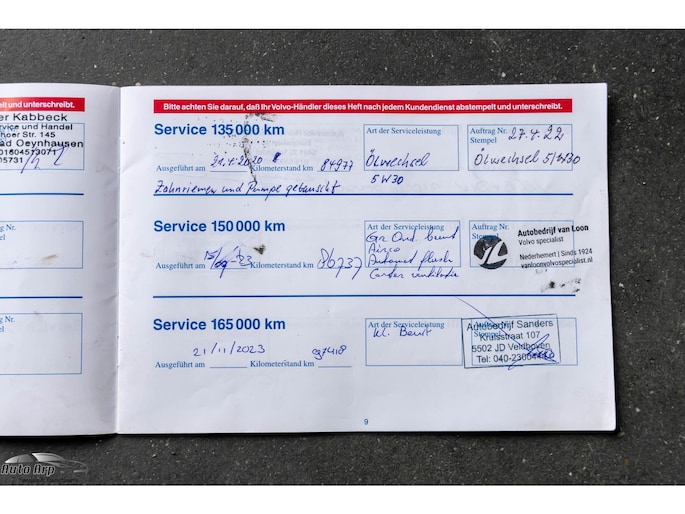 lt und unterschreibt.
er Kabbeck
rvice und Handel
hoer Str. 145
ad Oeynhausen
01604513071
05731/
ag Nr.
Bitte achten Sie darauf, daß Ihr Volvo-Händler dieses Heft nach jedem Kundendienst abstempelt und unterschreibt.
Service 135 000 km
Art der Serviceleistung
Auftrag Nr. 27.4.22
Stempel
Ölwechsel
5W30
Ölwechsel 5W30
Ausgeführt am 21.4.2020 Kilometerstand km 84977
Zahnriemen und Pumpe getauscht
Service 150 000 km
Art der Serviceleistung
Auftrag Nr.
Stempel
Gr Ond. beurt
Airco
Automaat flush
Carter ventilatie
Autobedrijf van Loon
Volvo specialist
Nederhemert | Sinds 1924
vanloonvolvospecialist.nl
Ausgeführt am Kilometerstand km 86737
Service 165 000 km
Art der Serviceleistung
Kl. Beurt
Autobedrijf Sanders
Kruisstraat 107
5502 JD Veldhoven
Tel: 040-2300
21/11/2023
Ausgeführt am Kilometerstand km
9
Auto Arp